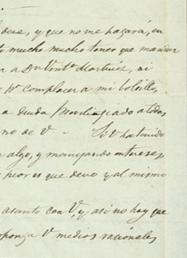 debese, y que no me pagará, en
lo mucho mucho tener que mandar
a Dn Vont. Martinez, ni
Vd complacer a mi bolsillo,
a deuda
no de V. - Si V ha tenido
algo, y manejando intereses,
peor es que deve y al mismo
asunto con V. y así no hay que
ponga V. medios racionales